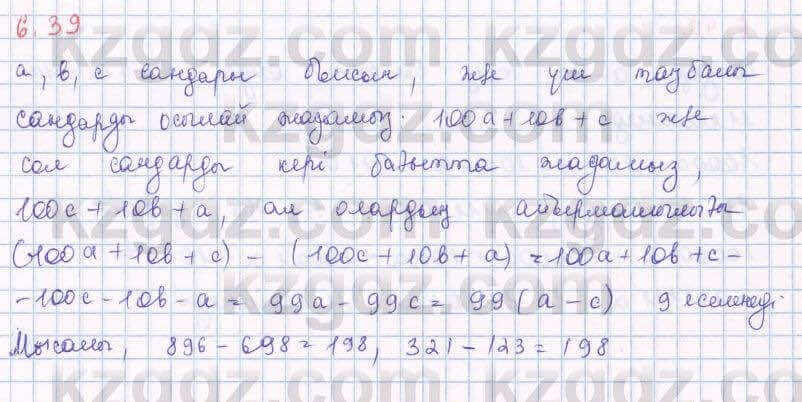 6.39
а, в, с сандары болсын, және үш таңбалы
сандарды осылай жазамыз. 100а+10в+с және
сол сандарды кері бағытта жазамыз,
100с+10в+а, ал олардың айырмашылығы
(100а+10в+с) - (100с+10в+а) = 100а+10в+с -
-100с-10в-а = 99а-99с= 99(а-с) 9 еселенеді.
Мысалы, 896-698=198, 321-123=198
kzgdz.com